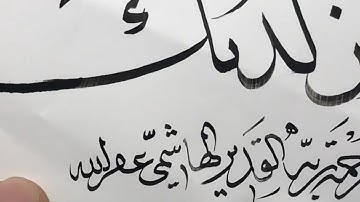 لديك
رحمة ربه القدير الهاشمي غفر الله